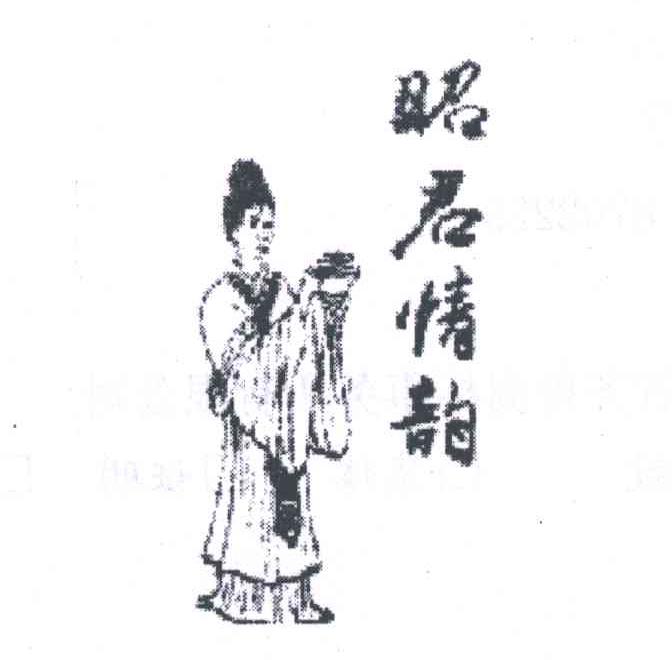 昭君情韵